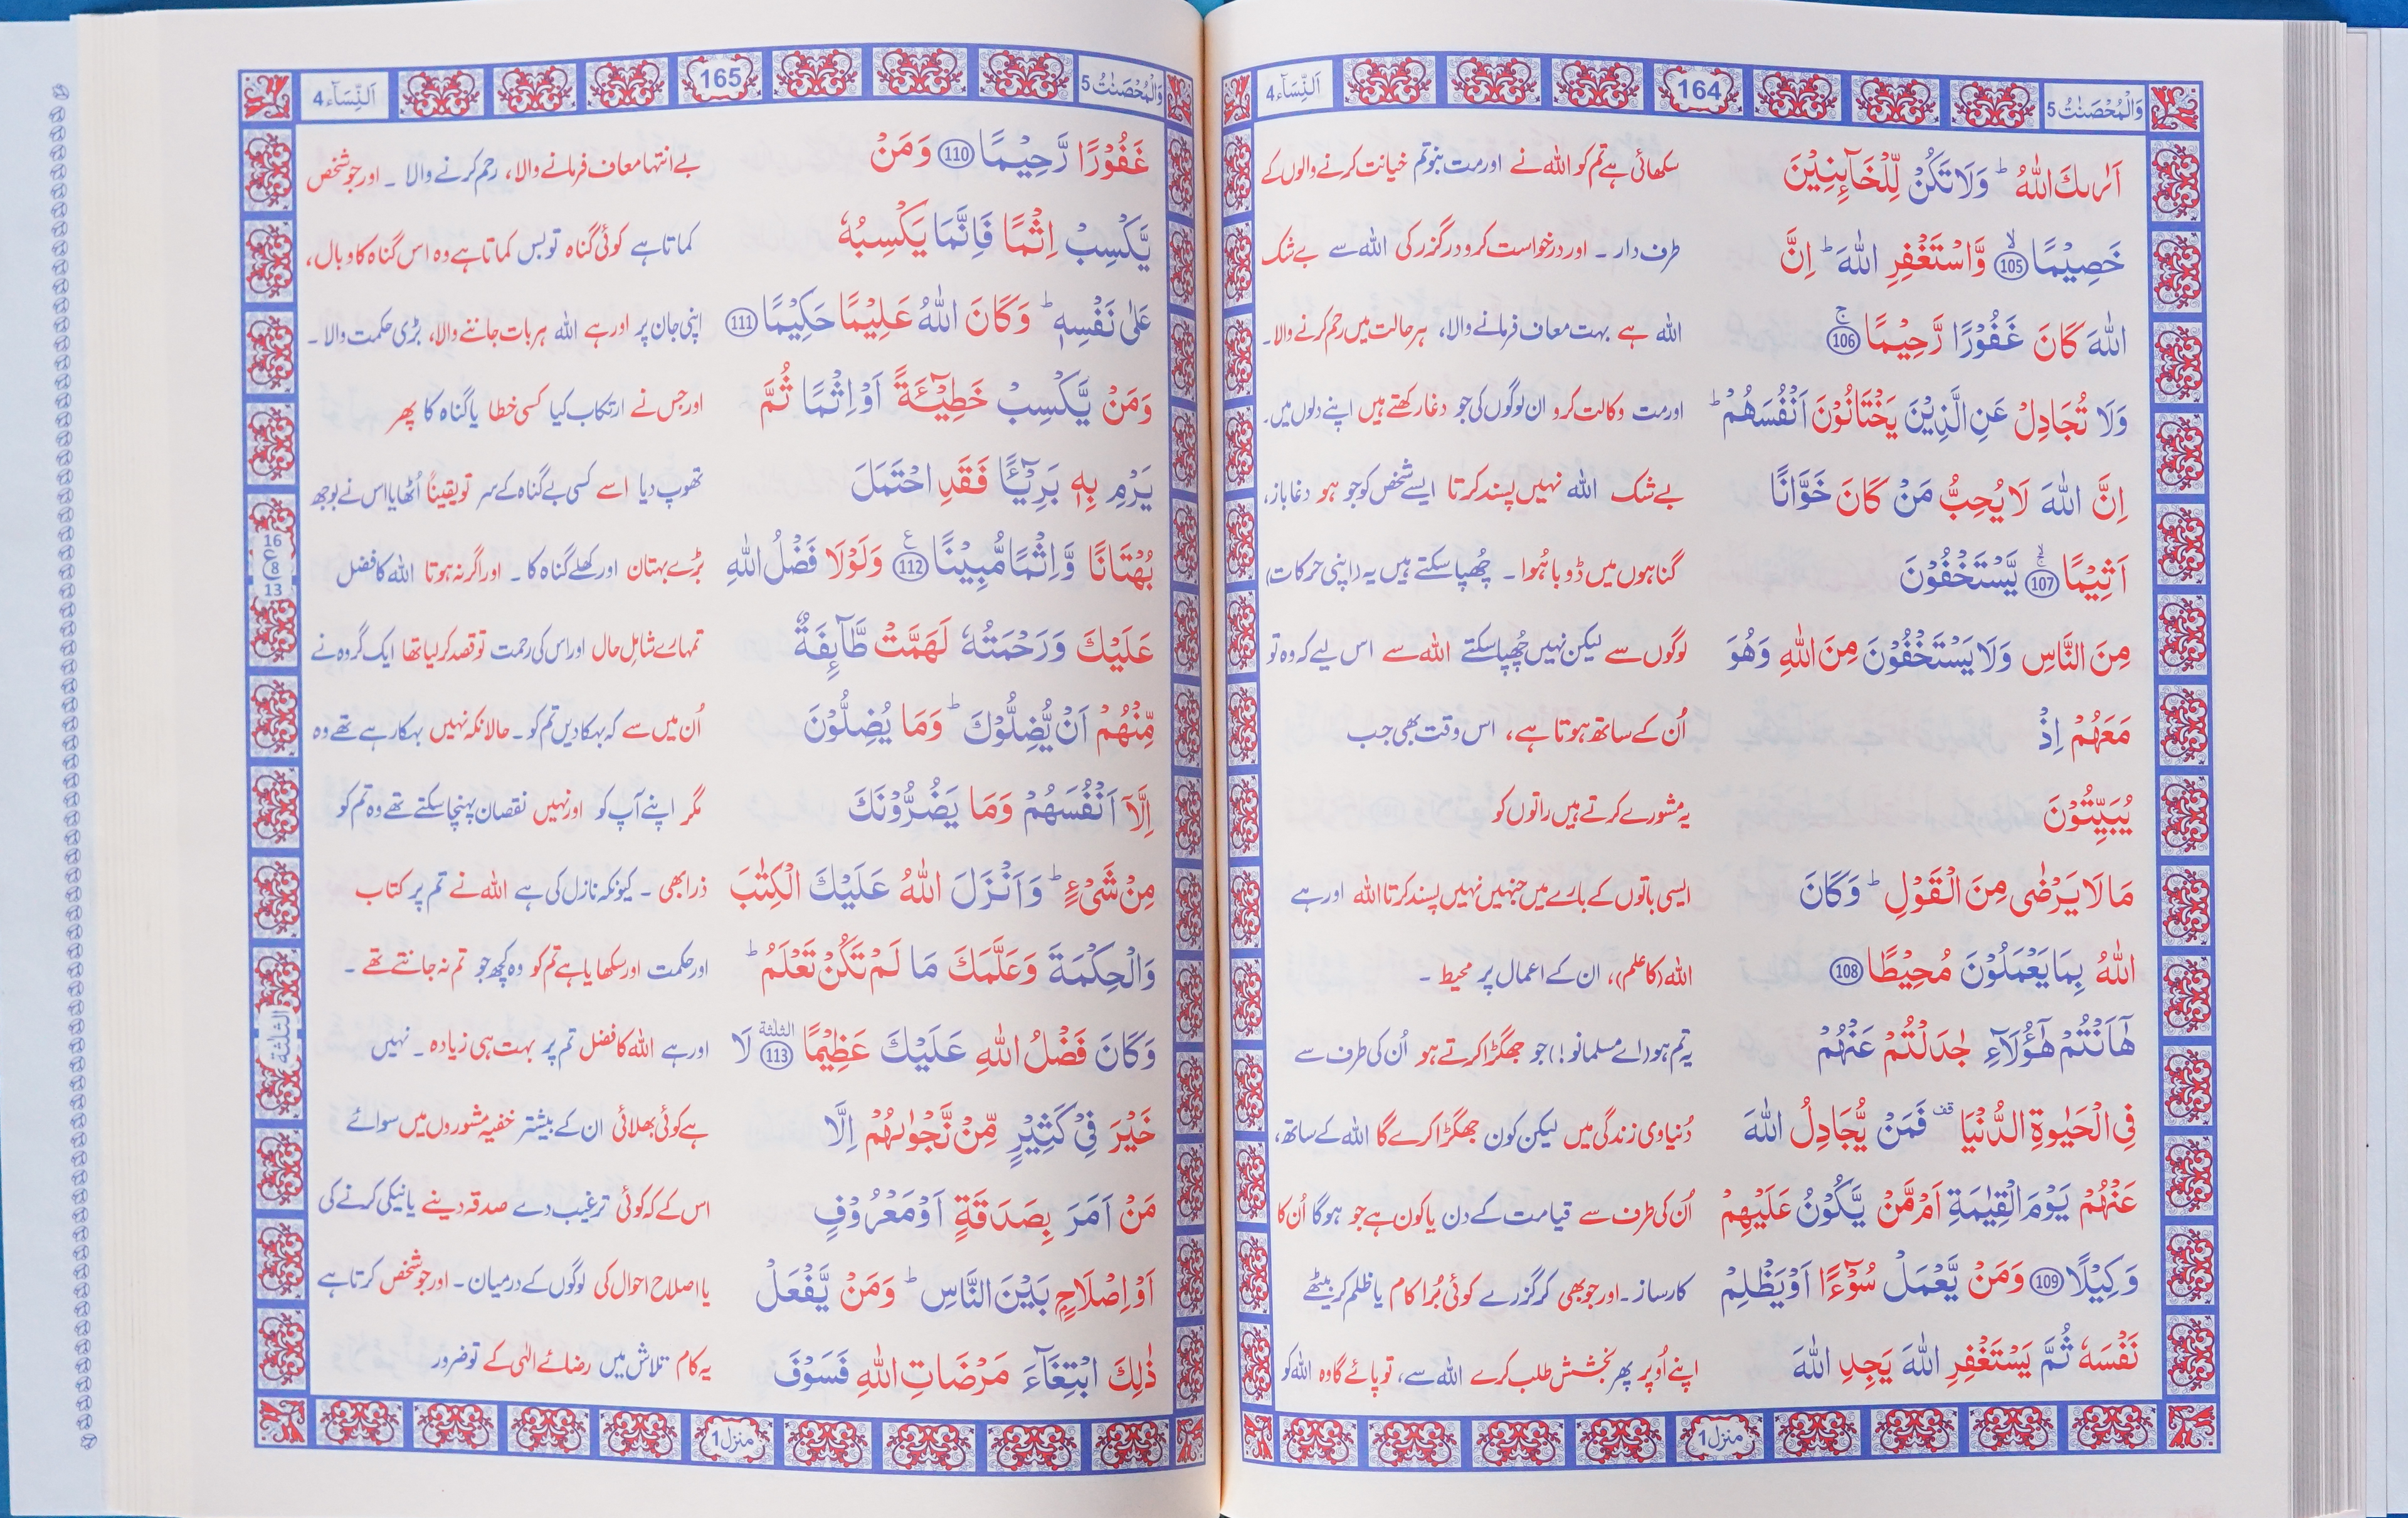 وَالْمُحْصَنٰتُ 5
164
اَلنِّسَآء 4
اَرٰىكَ اللّٰهُ ؕ وَلَا تَكُنْ لِّلْخَآىِٕنِيْنَ سکھائی ہے تم کو اللہ نے اور مت بنو تم خیانت کرنے والوں کے
خَصِيْمًا ۙ 105 وَّاسْتَغْفِرِ اللّٰهَ ؕ اِنَّ طرف دار ۔ اور درخواست کرو درگزر کی اللہ سے بے شک
اللّٰهَ كَانَ غَفُوْرًا رَّحِيْمًا ۚ 106 اللہ ہے بہت معاف فرمانے والا، ہر حالت میں رحم کرنے والا۔
وَلَا تُجَادِلْ عَنِ الَّذِيْنَ يَخْتَانُوْنَ اَنْفُسَهُمْ ؕ اور مت وکالت کرو ان لوگوں کی جو دغا رکھتے ہیں اپنے دلوں میں۔
اِنَّ اللّٰهَ لَا يُحِبُّ مَنْ كَانَ خَوَّانًا بے شک اللہ نہیں پسند کرتا ایسے شخص کو جو ہو دغا باز،
اَثِيْمًا ۚۙ 107 يَّسْتَخْفُوْنَ گناہوں میں ڈوبا ہُوا ۔ چُھپا سکتے ہیں یہ (اپنی حرکات)
مِنَ النَّاسِ وَلَا يَسْتَخْفُوْنَ مِنَ اللّٰهِ وَهُوَ لوگوں سے لیکن نہیں چُھپا سکتے اللہ سے اس لیے کہ وہ تو
مَعَهُمْ اِذْ اُن کے ساتھ ہوتا ہے، اس وقت بھی جب
يُبَيِّتُوْنَ یہ مشورے کرتے ہیں راتوں کو
مَا لَا يَرْضٰى مِنَ الْقَوْلِ ؕ وَكَانَ ایسی باتوں کے بارے میں جنہیں نہیں پسند کرتا اللہ اور ہے
اللّٰهُ بِمَا يَعْمَلُوْنَ مُحِيْطًا 108 اللہ (کا علم)، ان کے اعمال پر محیط ۔
هٰٓاَنْتُمْ هٰٓؤُلَآءِ جٰدَلْتُمْ عَنْهُمْ یہ تم ہو (اے مسلمانو!) جو جھگڑا کرتے ہو اُن کی طرف سے
فِى الْحَيٰوةِ الدُّنْيَا ۣ فَمَنْ يُّجَادِلُ اللّٰهَ دُنیاوی زندگی میں لیکن کون جھگڑا کرے گا اللہ کے ساتھ،
عَنْهُمْ يَوْمَ الْقِيٰمَةِ اَمْ مَّنْ يَّكُوْنُ عَلَيْهِمْ اُن کی طرف سے قیامت کے دن یا کون ہے جو ہو گا اُن کا
وَكِيْلًا 109 وَمَنْ يَّعْمَلْ سُوْٓءًا اَوْ يَظْلِمْ کارساز ۔ اور جو بھی کر گزرے کوئی بُرا کام یا ظلم کر بیٹھے
نَفْسَهٗ ثُمَّ يَسْتَغْفِرِ اللّٰهَ يَجِدِ اللّٰهَ اپنے اُوپر پھر بخشش طلب کرے اللہ سے، تو پائے گا وہ اللہ کو
منزل 1
وَالْمُحْصَنٰتُ 5
165
اَلنِّسَآء 4
غَفُوْرًا رَّحِيْمًا 110 وَمَنْ بے انتہا معاف فرمانے والا، رحم کرنے والا ۔ اور جو شخص
يَّكْسِبْ اِثْمًا فَاِنَّمَا يَكْسِبُهٗ کماتا ہے کوئی گناہ تو بس کماتا ہے وہ اس گناہ کا وبال،
عَلٰى نَفْسِهٖ ؕ وَكَانَ اللّٰهُ عَلِيْمًا حَكِيْمًا 111 اپنی جان پر اور ہے اللہ ہر بات جاننے والا، بڑی حکمت والا ۔
وَمَنْ يَّكْسِبْ خَطِيْٓئَةً اَوْ اِثْمًا ثُمَّ اور جس نے ارتکاب کیا کسی خطا یا گناہ کا پھر
يَرْمِ بِهٖ بَرِيْٓـًٔا فَقَدِ احْتَمَلَ تھوپ دیا اسے کسی بے گناہ کے سر تو یقیناً اُٹھایا اس نے بوجھ
بُهْتَانًا وَّاِثْمًا مُّبِيْنًا ع 112 وَلَوْلَا فَضْلُ اللّٰهِ بڑے بہتان اور کھلے گناہ کا ۔ اور اگر نہ ہوتا اللہ کا فضل
16
ع
8
13
عَلَيْكَ وَرَحْمَتُهٗ لَهَمَّتْ طَّآىِٕفَةٌ تمہارے شاملِ حال اور اس کی رحمت تو قصد کر لیا تھا ایک گروہ نے
مِّنْهُمْ اَنْ يُّضِلُّوْكَ ؕ وَمَا يُضِلُّوْنَ اُن میں سے کہ بہکا دیں تم کو ۔ حالانکہ نہیں بہکا رہے تھے وہ
اِلَّآ اَنْفُسَهُمْ وَمَا يَضُرُّوْنَكَ مگر اپنے آپ کو اور نہیں نقصان پہنچا سکتے تھے وہ تم کو
مِنْ شَىْءٍ ؕ وَاَنْزَلَ اللّٰهُ عَلَيْكَ الْكِتٰبَ ذرا بھی ۔ کیونکہ نازل کی ہے اللہ نے تم پر کتاب
وَالْحِكْمَةَ وَعَلَّمَكَ مَا لَمْ تَكُنْ تَعْلَمُ ؕ اور حکمت اور سکھایا ہے تم کو وہ کچھ جو تم نہ جانتے تھے ۔
وَكَانَ فَضْلُ اللّٰهِ عَلَيْكَ عَظِيْمًا الثلثة 113 لَا اور ہے اللہ کا فضل تم پر بہت ہی زیادہ ۔ نہیں
الثلثة
خَيْرَ فِىْ كَثِيْرٍ مِّنْ نَّجْوٰىهُمْ اِلَّا ہے کوئی بھلائی ان کے بیشتر خفیہ مشوروں میں سوائے
مَنْ اَمَرَ بِصَدَقَةٍ اَوْ مَعْرُوْفٍ اس کے کہ کوئی ترغیب دے صدقہ دینے یا نیکی کرنے کی
اَوْ اِصْلَاحٍ بَيْنَ النَّاسِ ؕ وَمَنْ يَّفْعَلْ یا اصلاح احوال کی لوگوں کے درمیان ۔ اور جو شخص کرتا ہے
ذٰلِكَ ابْتِغَآءَ مَرْضَاتِ اللّٰهِ فَسَوْفَ یہ کام تلاش میں رضائے الٰہی کے تو ضرور
منزل 1